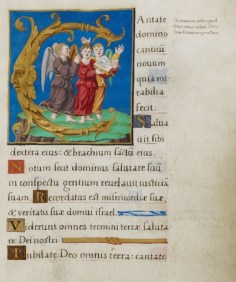 Cantate
domino
canticū
nouum
quia mi-
rabilia
fecit.
Salua
uit sibi
dextera eius: & brachium sāctū eius.
Notum fecit dominus salutare suū
in conspectu gentium reuelauit iusticiā
suam. Recordatus est misericordiæ suæ,
& veritatis suæ domui israel.
Viderunt omnes termini terræ: saluta
re Dei nostri
Iubilate Deo omnis terra: cantate